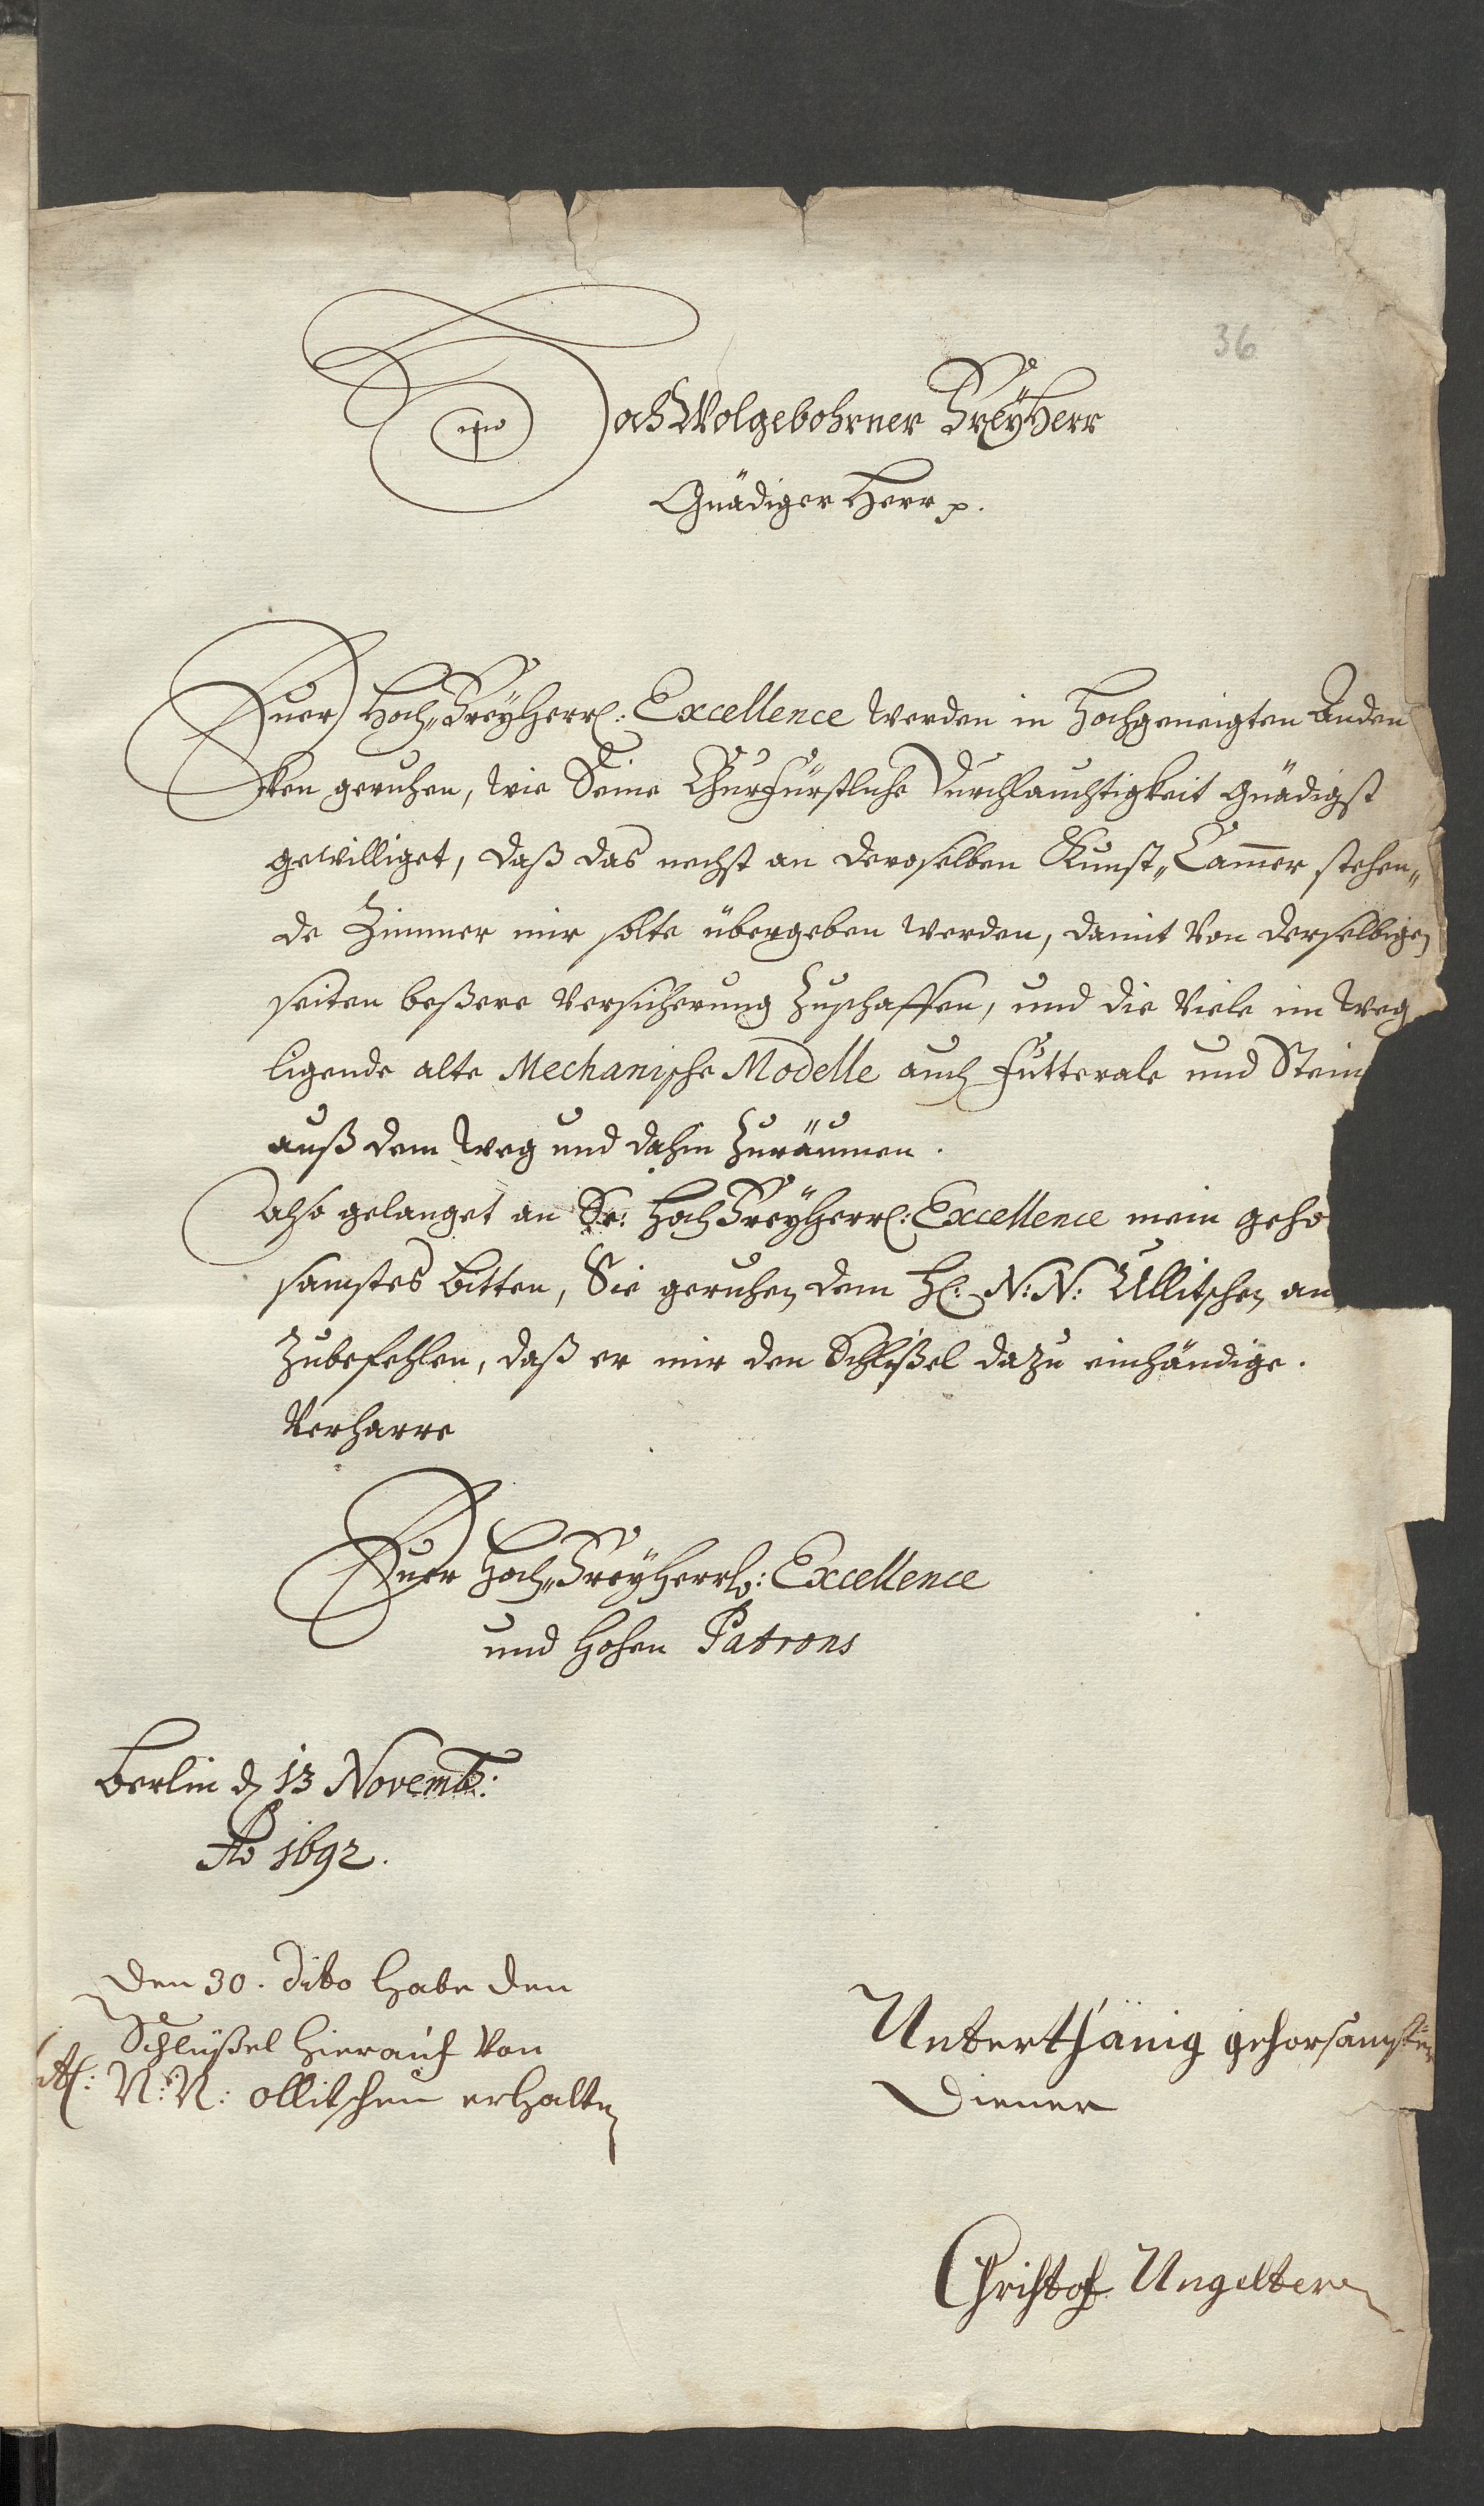 36
HochWolgebohrner FreyHerr
Gnädiger Herr p.
Euer Hoch„FreyHerrl: Excellence werden in Hochgeneigten Anden
cken geruhen, wie Seine Churfürstliche Durchlauchtigkeit Gnädigst
gewilliget, daß das nechst an deroselben Kunst„Cam̄er stehen„
de Zimmer mir solte übergeben werden, damit von derselbigen
seiten beßere versicherung zuschaffen, und die viele im weg
ligende alte Mechanische Modelle auch Futterale und Stein
auß dem weg und dahin zuräumen.
Also gelanget an Sr: HochFreyHerrl: Excellence mein geho
samstes bitten, Sie geruhen dem H: N: N: Ullitschen an
zubefehlen, daß er mir den Schlißel dazu einhändige.
Verharre
Euer Hoch„FreyHerrl: Excellence
und Hohen Patrons
Berlin d 13 Novemb:
Ao 1692.
Den 30. dito habe den
Schlüßel hierauf von
H: N: N: Ollitschen erhalten
Unterthänig gehorsamster
Diener
Christof Ungelter